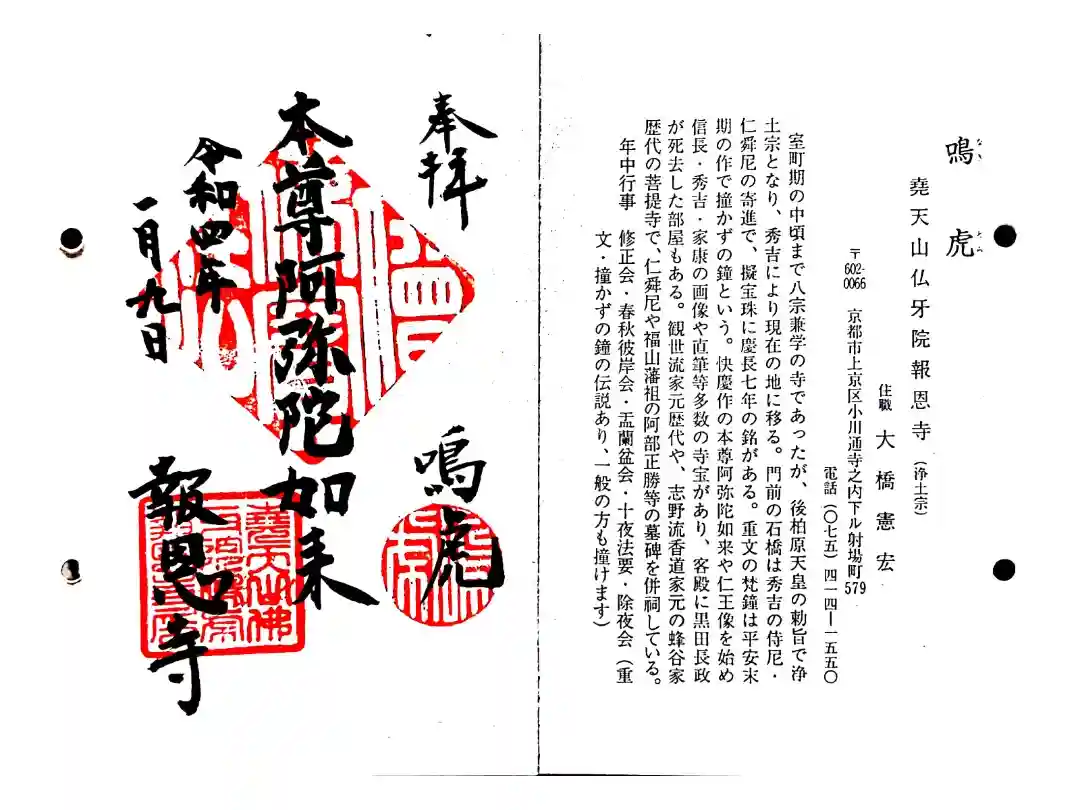 鳴虎
なき とら
堯天山仏牙院報恩寺(浄土宗)
住職 大橋憲宏
〒602-0066 京都市上京区小川通寺之内下ル射場町579
電話(〇七五)四一四ー一五五〇
室町期の中頃まで八宗兼学の寺であったが、後柏原天皇の勅旨で浄
土宗となり、秀吉により現在の地に移る。門前の石橋は秀吉の侍尼・
仁舜尼の寄進で、擬宝珠に慶長七年の銘がある。重文の梵鐘は平安末
期の作で撞かずの鐘という。快慶作の本尊阿弥陀如来や仁王像を始め
信長・秀吉・家康の画像や直筆等多数の寺宝があり、客殿に黒田長政
が死去した部屋もある。観世流家元歴代や、志野流香道家元の蜂谷家
歴代の菩提寺で、仁舜尼や福山藩祖の阿部正勝等の墓碑を併祠している。
年中行事 修正会・春秋彼岸会・盂蘭盆会・十夜法要・除夜会(重
文・撞かずの鐘の伝説あり、一般の方も撞けます)
奉拝
鳴虎
本尊阿弥陀如来
令和四年
一月九日
報恩寺